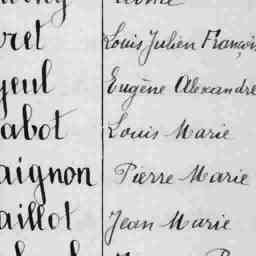 ret Louis Julien François
yeul Eugène Alexandre
abot Louis Marie
aignon Pierre Marie
aillot Jean Marie